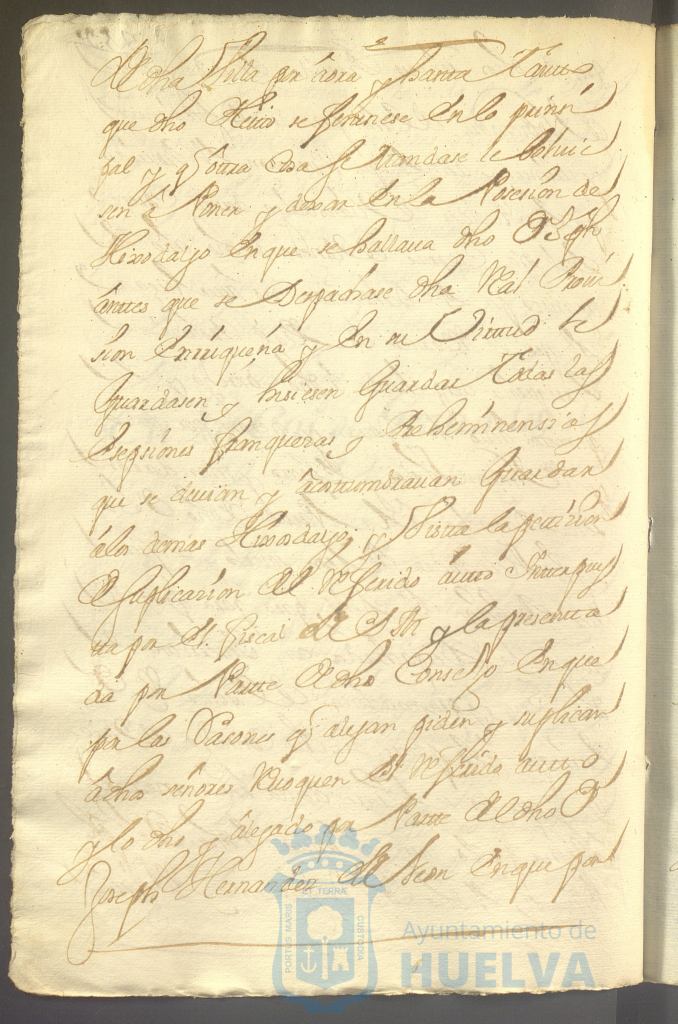 de dha Villa por aora y hasta tantto
que dho Pleito se feneziese en lo prinsi
pal y q otra cosa se mandase le bolvie
sen a Poner y dexar en la Posesion de
Hixodalgo en que se hallava dho D Joseph
anttes que se Despachase dha Real Provi
sion enrriqueña y en su Virttud le
Guardasen y hisiesen Guardar Todas las
esepsiones franquezas y Reheminensias
que se devian y acostumbravan Guardar
a los demas Hixosdalgo y Vistta la petision
de suplicasion del referido autto Intterpues
tta por el fiscal de S M y la presentta
da por Partte de dho Consejo en que
por las Rasones q alegan piden y suplican
a dhos señores Revoquen el referido autto
y lo dho y alegado por Partte del dho D
Joseph Hernandez de Leon en que por
PORTUS MARIS
ET TERRÆ
CUSTODIA
Ayuntamiento de
HUELVA